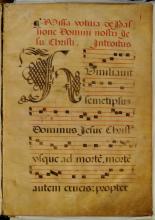 Missa votiua de Pas
sione Domini nostri Je
su Christi. Introitus
Humiliauit
semetipsuz
Dominus Jesus Christꝰ
vsque ad mortē, mortē
autem crucis: propter